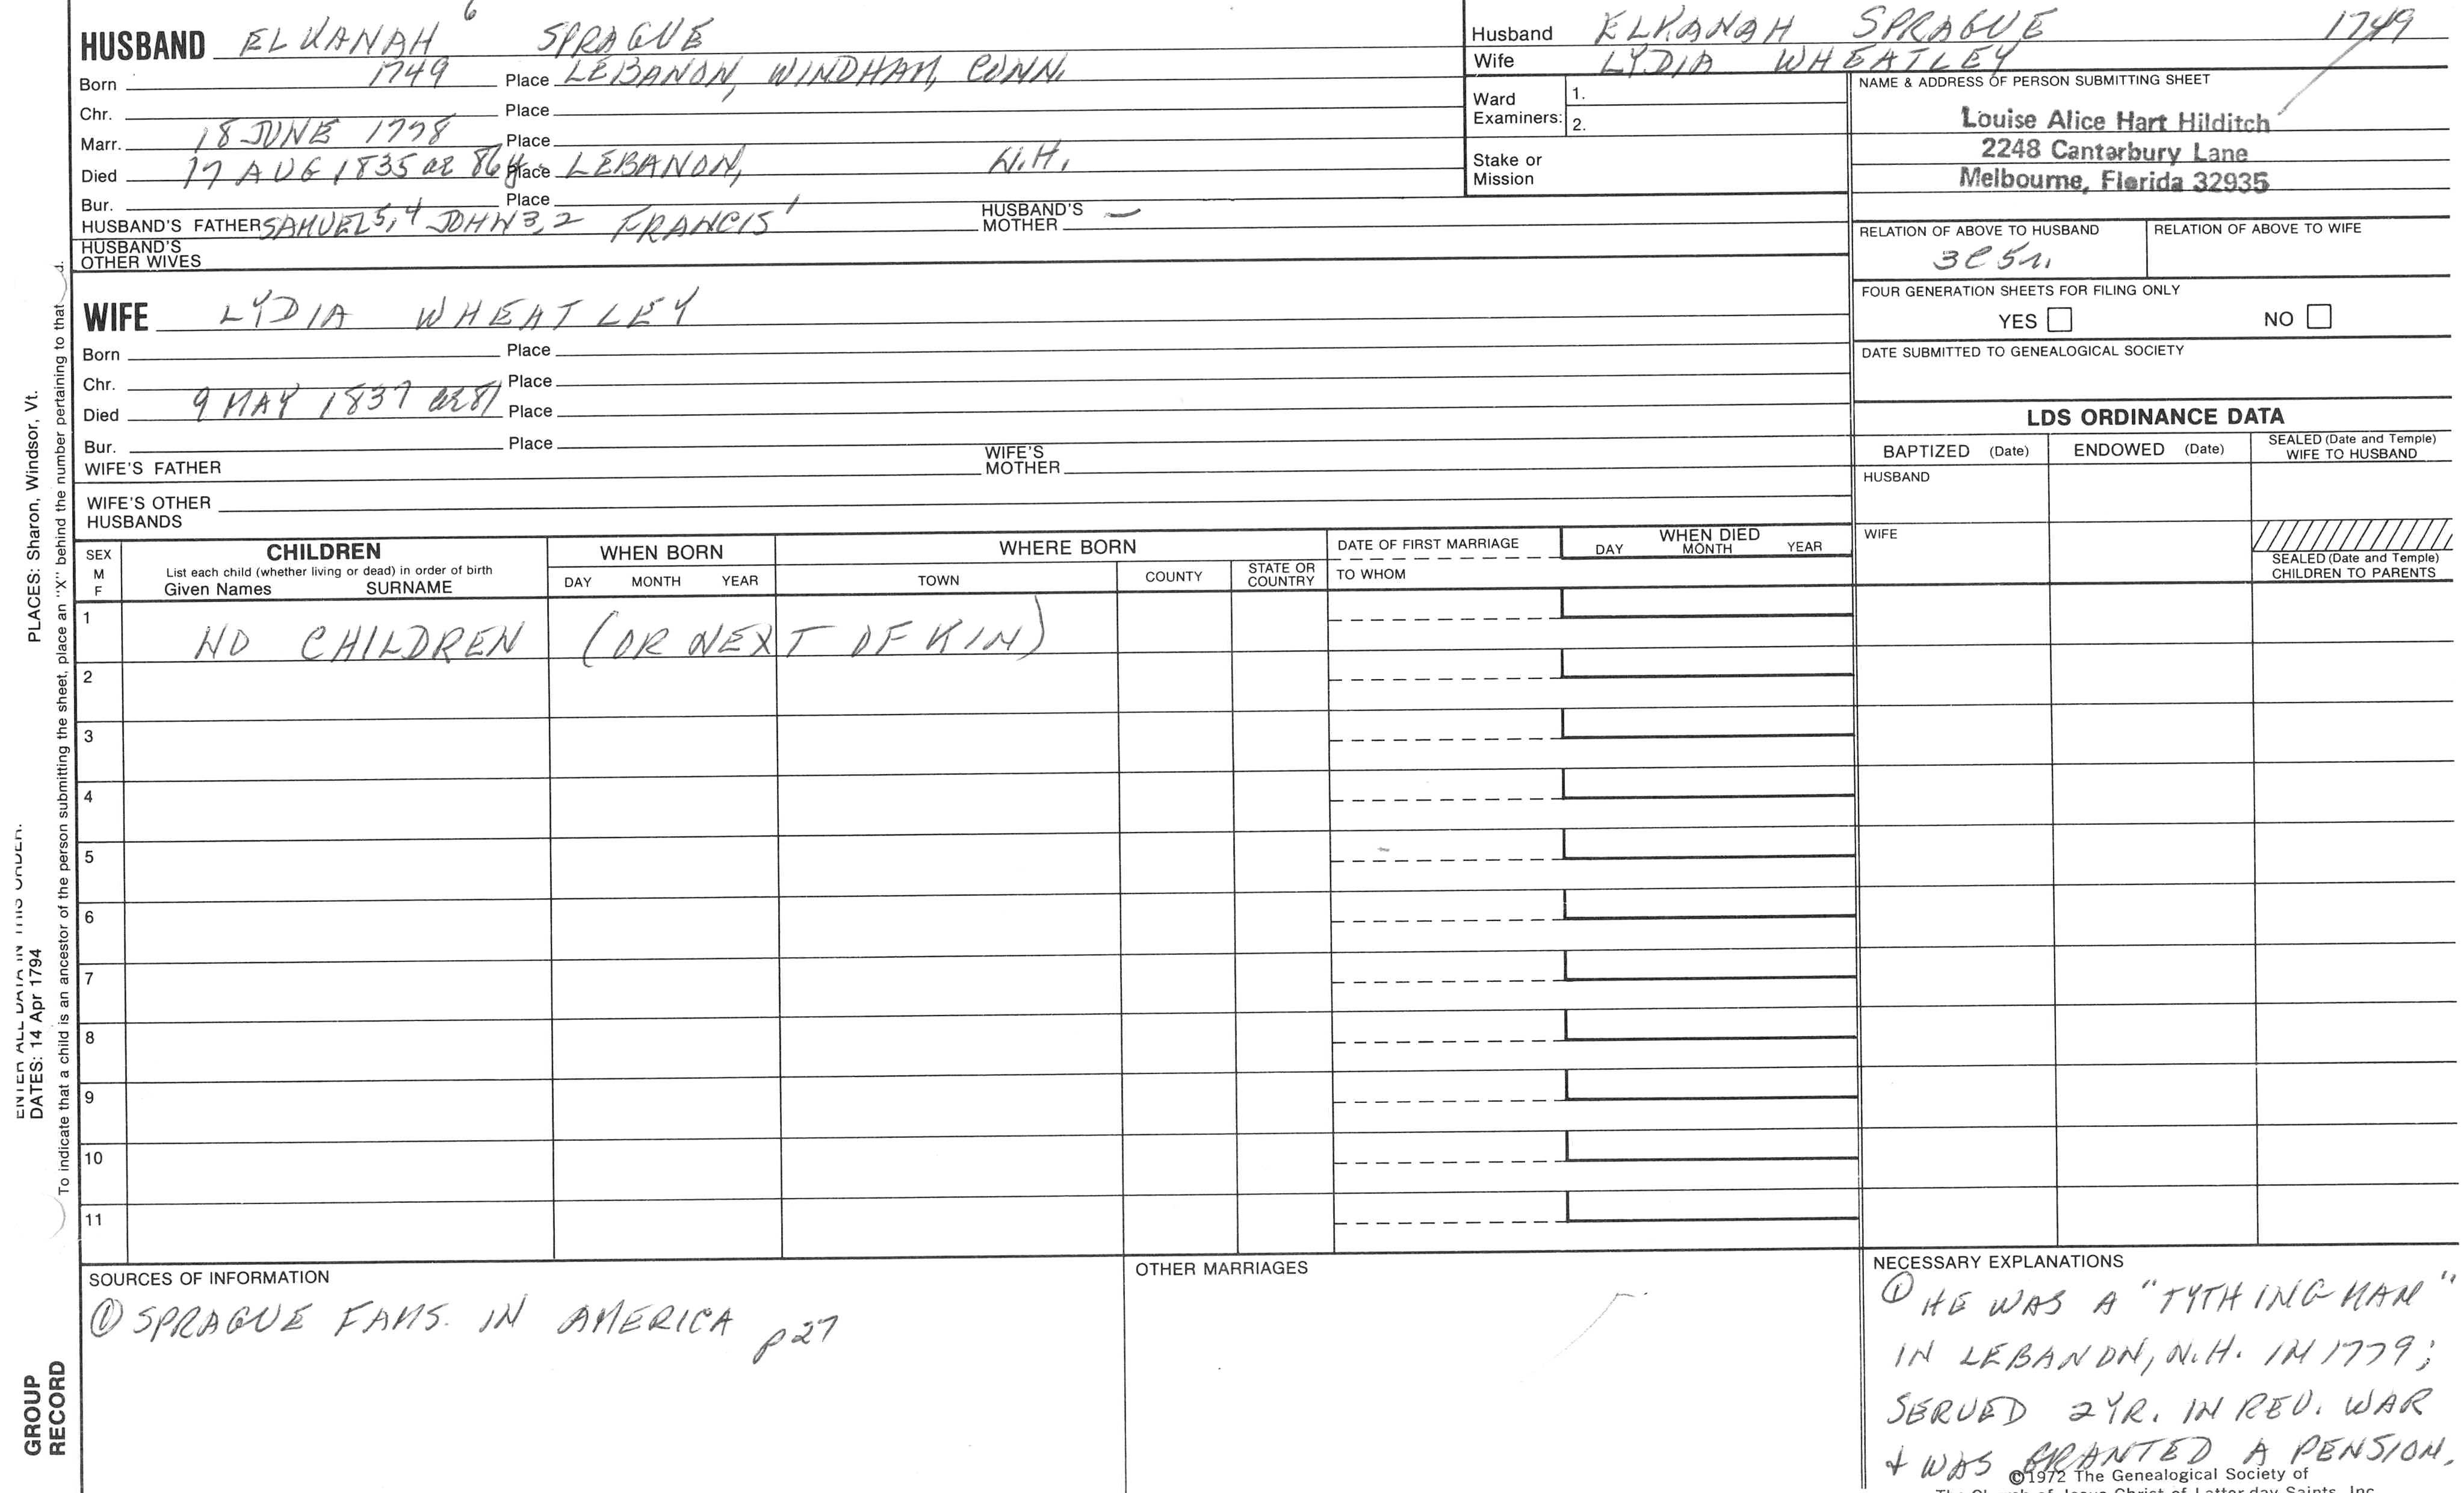 6
HUSBAND ELKANAH SPRAGUE
Born 1749 Place LEBANON, WINDHAM, CONN.
Chr. Place
Marr. 18 JUNE 1778 Place
Died 17 AUG 1835 ae 86y Place LEBANON, N.H.
Bur. Place
HUSBAND'S FATHER SAMUEL 5,4 JOHN 3,2 FRANCIS 1 HUSBAND'S MOTHER —
HUSBAND'S
OTHER WIVES
WIFE LYDIA WHEATLEY
Born Place
Chr. Place
Died 9 MAY 1837 ae 81 Place
Bur. Place
WIFE'S FATHER WIFE'S MOTHER
WIFE'S OTHER
HUSBANDS
Husband ELKANAH SPRAGUE 1749
Wife LYDIA WHEATLEY
Ward
Examiners:
1.
2.
Stake or
Mission
NAME & ADDRESS OF PERSON SUBMITTING SHEET
Louise Alice Hart Hilditch
2248 Canterbury Lane
Melbourne, Florida 32935
RELATION OF ABOVE TO HUSBAND RELATION OF ABOVE TO WIFE
3C5r.
FOUR GENERATION SHEETS FOR FILING ONLY
YES NO
DATE SUBMITTED TO GENEALOGICAL SOCIETY
LDS ORDINANCE DATA
BAPTIZED (Date) ENDOWED (Date) SEALED (Date and Temple)
WIFE TO HUSBAND
HUSBAND
WIFE
SEALED (Date and Temple)
CHILDREN TO PARENTS
SEX
M
F
CHILDREN
List each child (whether living or dead) in order of birth
Given Names SURNAME
WHEN BORN
DAY MONTH YEAR
WHERE BORN
TOWN COUNTY STATE OR
COUNTRY
DATE OF FIRST MARRIAGE
TO WHOM
WHEN DIED
DAY MONTH YEAR
1 NO CHILDREN (OR NEXT OF KIN)
2
3
4
5
6
7
8
9
10
11
SOURCES OF INFORMATION
① SPRAGUE FAMS. IN AMERICA p27
OTHER MARRIAGES
NECESSARY EXPLANATIONS
① HE WAS A "TYTHINGMAN"
IN LEBANON, N.H. IN 1779;
SERVED 2 YR. IN REV. WAR
+ WAS GRANTED A PENSION.
©1972 The Genealogical Society of
The Church of Jesus Christ of Latter-day Saints, Inc.
ENTER ALL DATA IN THIS ORDER:
DATES: 14 Apr 1794 PLACES: Sharon, Windsor, Vt.
To indicate that a child is an ancestor of the person submitting the sheet, place an "X" behind the number pertaining to that d.
GROUP
RECORD